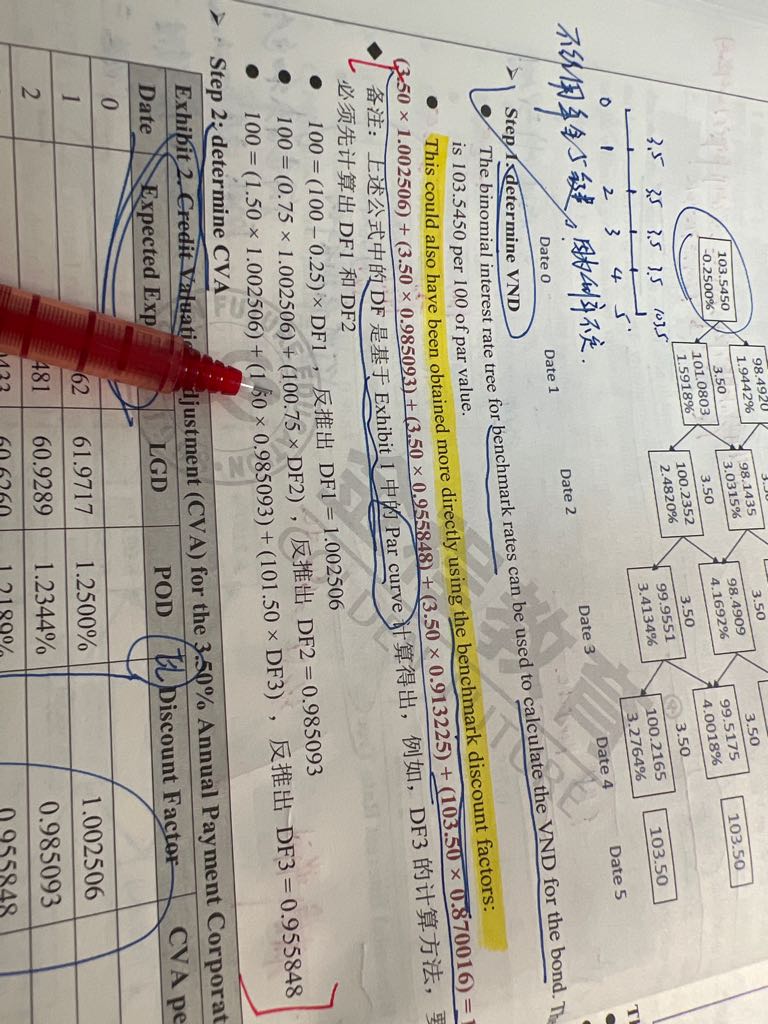 3.5 3.5 3.5 3.5 103.5
0 1 2 3 4 5
98.4920
1.9442%
3.50
98.1435
3.0315%
3.50
98.4909
4.1692%
3.50
99.5175
4.0018%
103.50
103.5450
-0.2500%
3.50
101.0803
1.5918%
3.50
100.2352
2.4820%
3.50
99.9551
3.4134%
3.50
100.2165
3.2764%
103.50
Date 0 Date 1 Date 2 Date 3 Date 4 Date 5
Step 1: determine VND
The binomial interest rate tree for benchmark rates can be used to calculate the VND for the bond.
is 103.5450 per 100 of par value.
This could also have been obtained more directly using the benchmark discount factors:
(3.50 × 1.002506) + (3.50 × 0.985093) + (3.50 × 0.955848) + (3.50 × 0.913225) + (103.50 × 0.870016) =
备注：上述公式中的 DF 是基于 Exhibit 1 中的 Par curve 计算得出，例如，DF3 的计算方法，
必须先计算出 DF1 和 DF2
100 = (100 − 0.25) × DF1，反推出 DF1 = 1.002506
100 = (0.75 × 1.002506) + (100.75 × DF2)，反推出 DF2 = 0.985093
100 = (1.50 × 1.002506) + (1.50 × 0.985093) + (101.50 × DF3)，反推出 DF3 = 0.955848
Step 2: determine CVA
Exhibit 2. Credit Valuation Adjustment (CVA) for the 3.50% Annual Payment
Date Expected LGD POD Discount Factor CVA
0
1 61.9717 1.2500% 1.002506
2 60.9289 1.2344% 0.985093
60.6260 1.2189% 0.955848